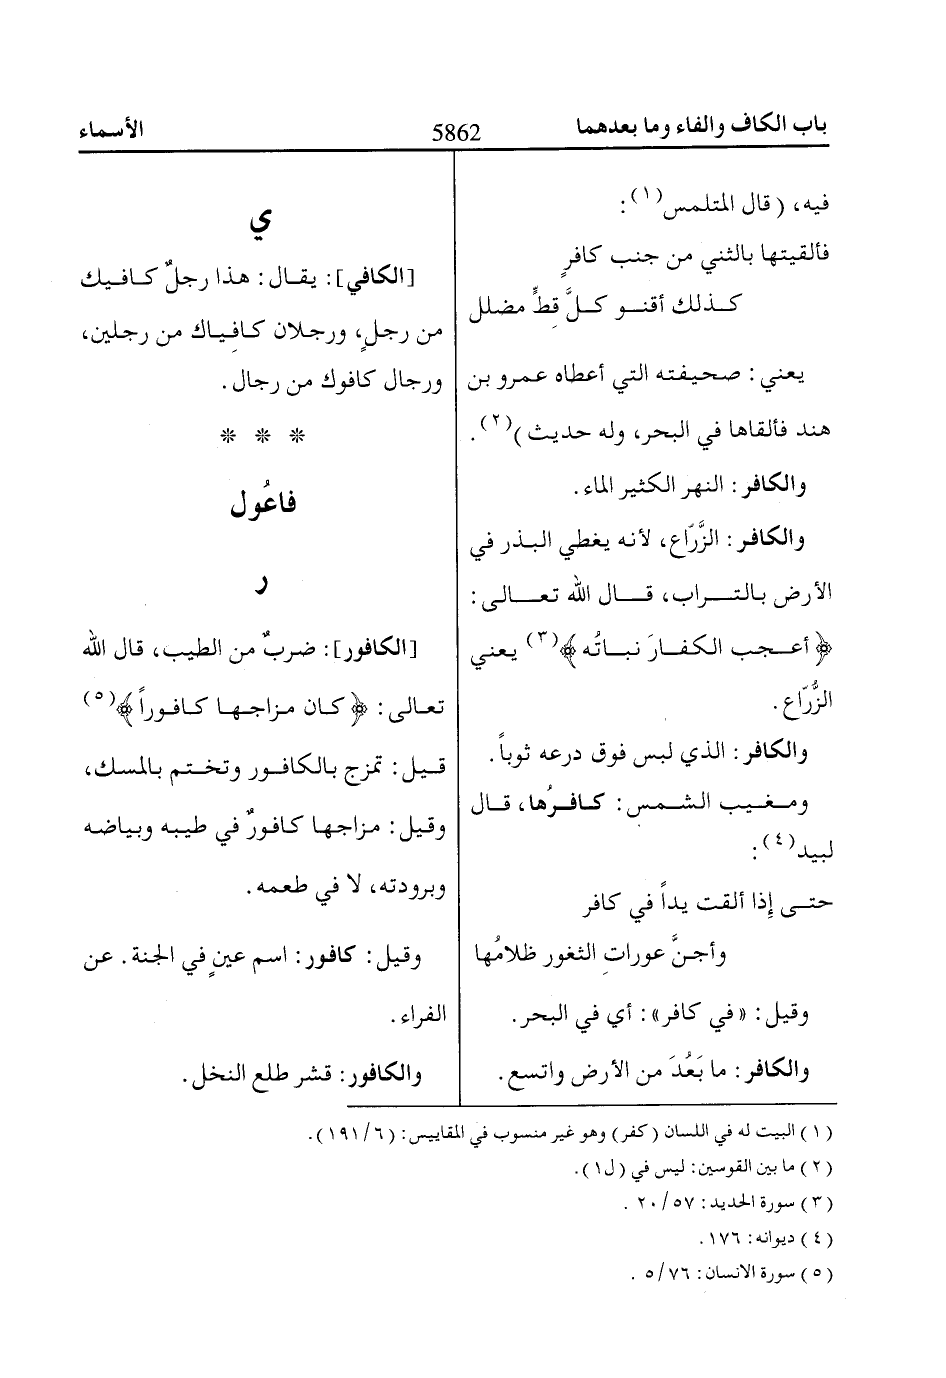 باب الكاف والفاء وما بعدهما 5862 الأسماء
فيه، ( قال المتلمس(١):
فألقيتها بالثني من جنب كافرٍ
كذلك أقنو كلَّ قطٍّ مضلل
يعني: صحيفته التي أعطاه عمرو بن
هند فألقاها في البحر، وله حديث )(٢).
والكافر: النهر الكثير الماء.
والكافر: الزَّرّاع، لأنه يغطي البذر في
الأرض بالتراب، قال الله تعالى:
﴿أعجب الكفارَ نباتُه﴾(٣) يعني
الزُّرّاع.
والكافر: الذي لبس فوق درعه ثوباً.
ومغيب الشمس: كافرُها، قال
لبيد(٤):
حتى إذا ألقت يداً في كافر
وأجنَّ عوراتِ الثغور ظلامُها
وقيل: «في كافر»: أي في البحر.
والكافر: ما بَعُدَ من الأرض واتسع.
ي
[الكافي]: يقال: هذا رجلٌ كافيك
من رجلٍ، ورجلان كافِياك من رجلين،
ورجال كافوك من رجال.
* * *
فاعُول
ر
[الكافور]: ضربٌ من الطيب، قال الله
تعالى: ﴿كان مزاجها كافوراً﴾(٥)
قيل: تمزج بالكافور وتختم بالمسك،
وقيل: مزاجها كافورٌ في طيبه وبياضه
وبرودته، لا في طعمه.
وقيل: كافور: اسم عينٍ في الجنة. عن
الفراء.
والكافور: قشر طلع النخل.
(١) البيت له في اللسان (كفر) وهو غير منسوب في المقاييس: (١٩١/٦).
(٢) ما بين القوسين: ليس في (ل١).
(٣) سورة الحديد: ٢٠/٥٧ .
(٤) ديوانه: ١٧٦.
(٥) سورة الانسان: ٥/٧٦ .